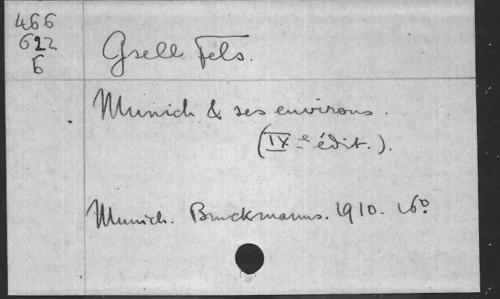 466
622
6
Gsell Fels.
Munich & ses environs.
(IXe édit.).
Munich. Bruckmanns. 1910. 16o